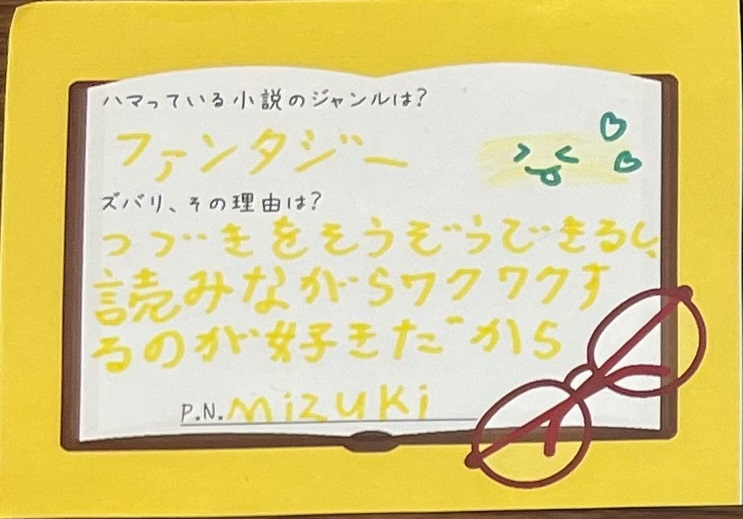 ハマっている小説のジャンルは?
ファンタジー
ズバリ、その理由は?
つづきをそうぞうできるし、
読みながらワクワクす
るのが好きだから
P.N. MIZUKI